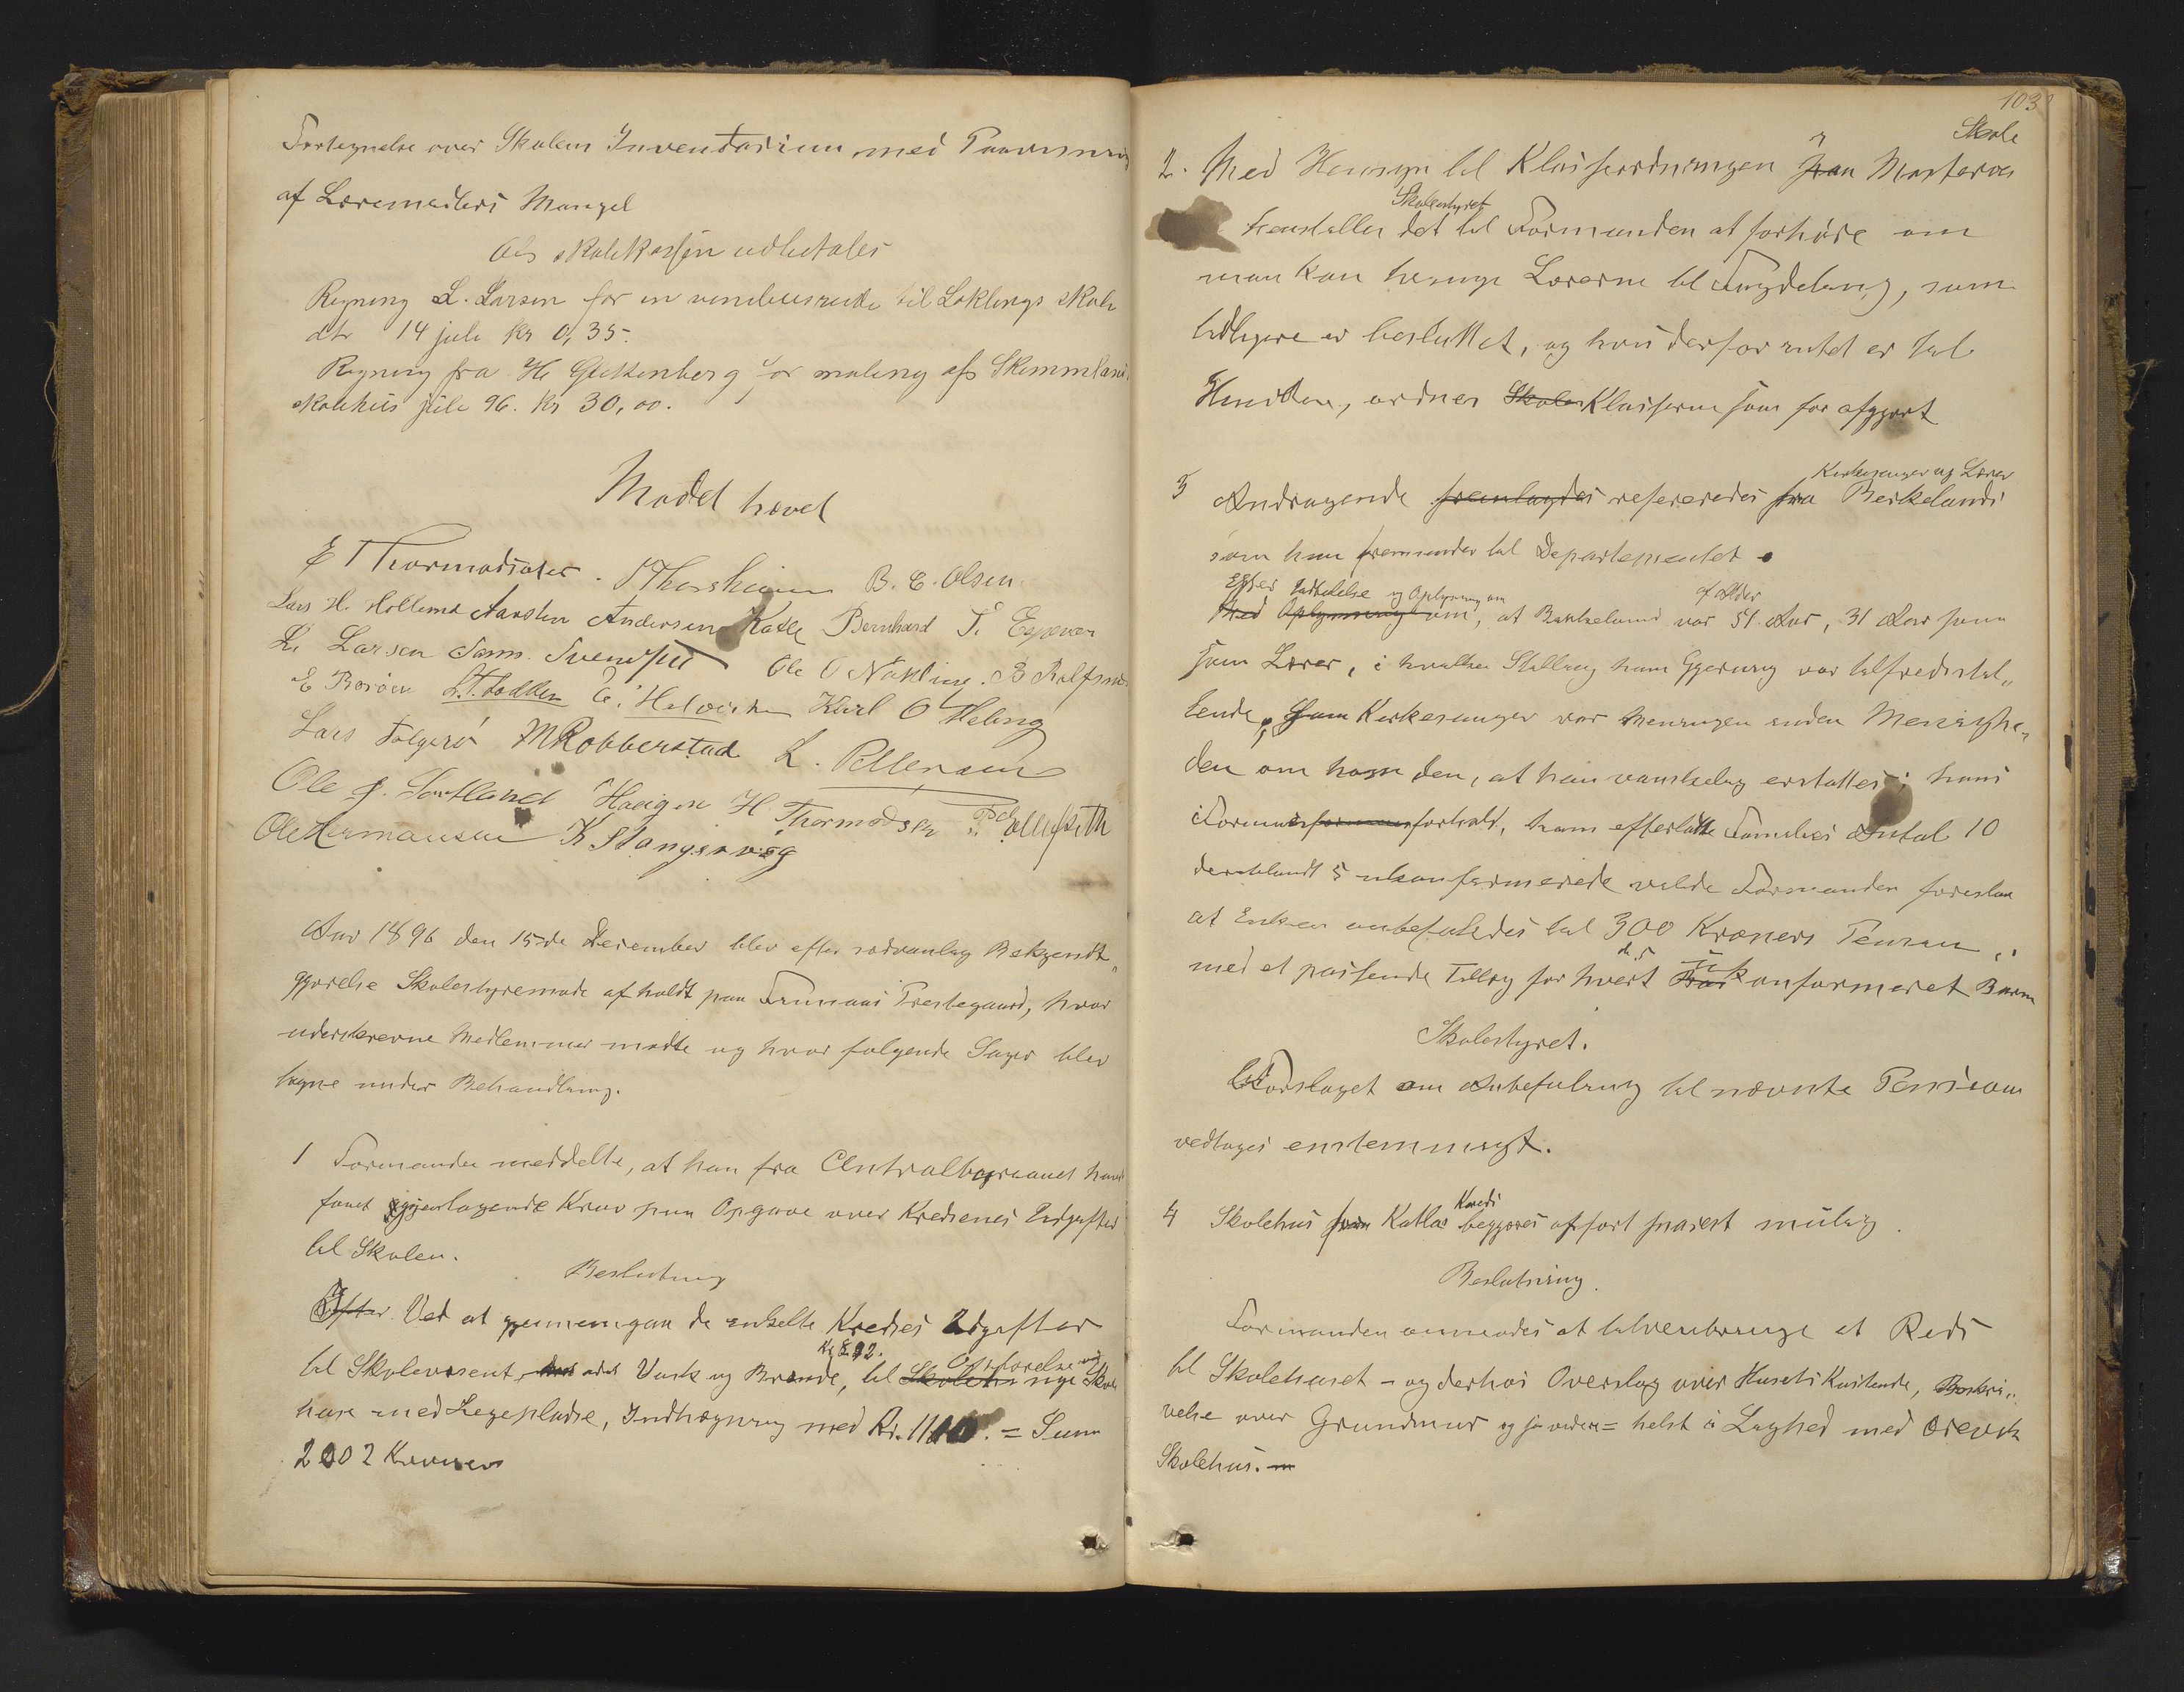 Fortegnelse over Skolens Inventarium med Paavisning
af Læremidlers Mangel
Af skolekassen udbetales
Regning L. Larsen for en vinduesrude til Løklings skole
dtr 14 juli kr 0,35.
Regning fra H. Guttenberg for maling af Skimmeland
skolehus juli 96. kr 30,00.
Mødet hævet
E Thormodsæter. S Thorsheim B. E. Olsen
Lars H. Hollund Karsten Andersen Katle Bernhard T. Espevær
L. Larsen Sams. Svendsen Ole O Nøkling. B Rolfsnes
E Børøen L. T. Lodden C. Halvorsen Karl O Meling
Lars Folgerø M Robberstad L. Pettersen
Ole J. Sortland Haagen H. Thormodsen P. Tollefseth
Ole Hermansen K Stangervåg
Aar 1896 den 15de December blev efter sedvanlig Bekjendt„
gjørelse Skolestyremøde afholdt paa Finnaas Prestegaard, hvor
underskrevne Medlemmer mødte og hvor følgende Sager blev
tagne under Behandling.
1 Formanden meddelte, at han fra Centralbyraaet havde
faaet gjentagende Krav paa Opgave over Kredsenes Udgifter
til Skolen.
Beslutning
Efter Ved at gjennemgaa de enkelte Kredses Udgifter
til Skolevæsenet, Vask og Brænde, til Skolehu nye Skole
huse med Legepladse, Indhegning med Kr. 1110. = Sum
2002 Kroner
103
Skole
2. Med Hensyn til Klasseordningen fra Mosterøen
Skolestyret
henstiller det til Formanden at forhøre om
man kan tvinge Lærerne til Tvedeling, som
tidligere er besluttet, og hvis derfor intet er til
Hinder, ordnes Skole Klasserne som før afgjort
Kirkesanger og Lærer
3 Andragende fremlagdes refereredes fra Berkelands
som han fremsender til Departementet.
Efter Indledelse og Oplysning om af Alder
Med Oplysning om, at Berkeland var 51 Aar, 31 Aar som
som Lærer, i hvilken Stilling hans Gjerning var tilfredsstil„
lende, som Kirkesanger var Meningen inden Menighe„
den om ham den, at han vanskelig erstattes; hans
Formuesforhold, hans efterladte Families Antal 10
deriblandt 5 ukonfirmerede vilde Formanden foreslaa
at Enken anbefaledes til 300 Kroners Pension,
med et passende Tillæg for hvert ukonfirmeret Barn
Skolestyret.
Forslaget om Anbefaling til nævnte Pension
vedtages enstemmigt.
Kreds
4 Skolehus for Katla bygges af fort snarest mulig.
Beslutning.
Formanden anmodes at tilveiebringe et Rids
til Skolehuset – og derhos Overslag over Husets Kostende, Beskri„
velse over Grundmur og så videre = helst i Lighed med Økevik
Skolehus.